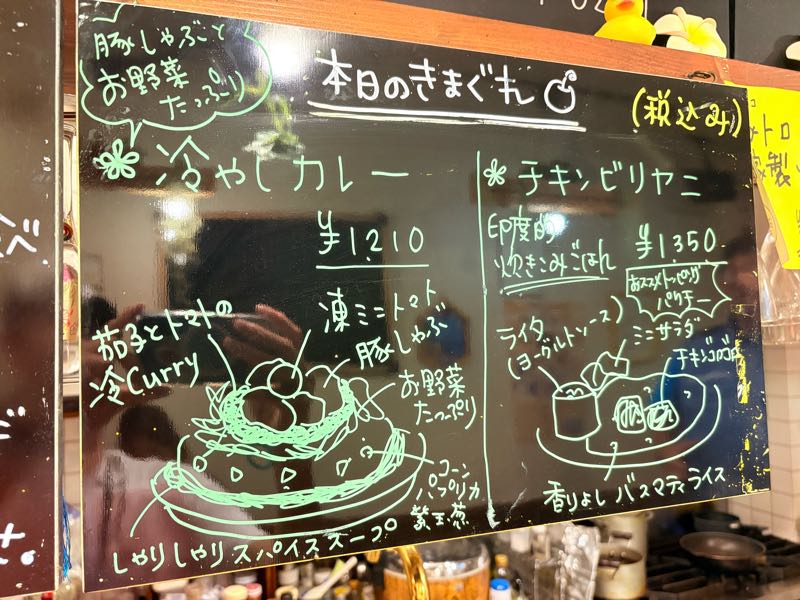 豚しゃぶと
お野菜
たっぷり
本日のきまぐれ
(税込み)
冷やしカレー
¥1210
茄子とトマトの
冷Curry
凍ミニトマト
豚しゃぶ
お野菜
たっぷり
コーン
パプリカ
しゃりしゃりスパイススープ
チキンビリヤニ
印度的
炊きこみごはん
¥1350
おススメトッピング
パクチー
ライタ
(ヨーグルトソース)
ミニサラダ
チキンゴロゴロ
香りよしバスマティライス